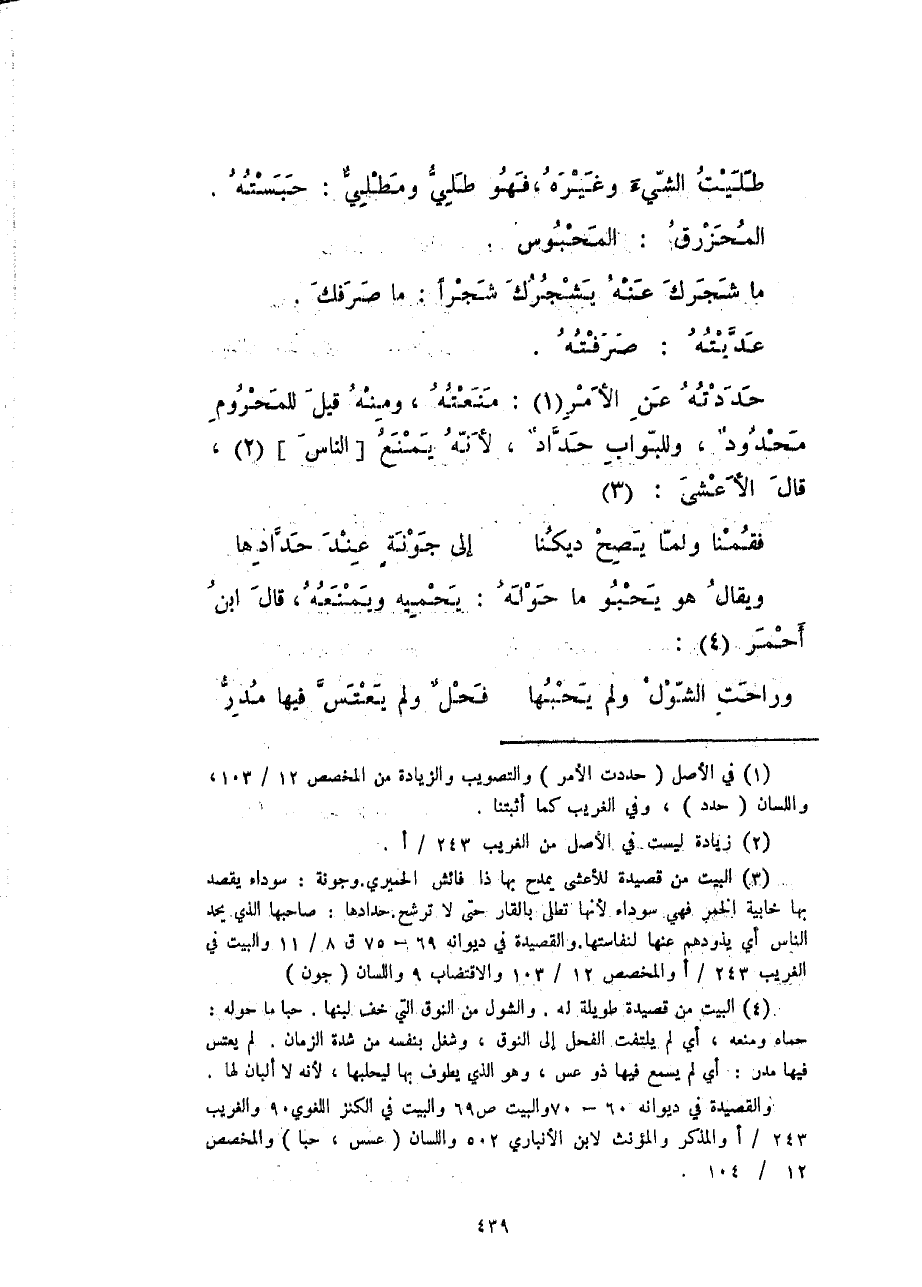 طَلَيْتُ الشّيءَ وغَيْرَهُ ، فَهُو طَلِيُّ ومَطْلِيٌّ : حَبَسْتُهُ .
المُحَزْرقُ : المَحْبُوس .
ما شَجَرَكَ عَنْهُ يَشْجُرُكَ شَجْراً : ما صَرَفكَ .
عَدَّيْتُهُ : صَرَفْتُهُ .
حَدَدْتُهُ عَنِ الأَمْرِ (١) : مَنَعْتُهُ ، ومِنْهُ قيلَ للمَحْرُومِ
مَحْدُودٌ ، وللبّوابِ حَدَّادٌ ، لأنّهُ يَمْنَعُ [ الناسَ ] (٢) ،
قالَ الأَعْشىَ : (٣)
فقُمْنا ولمّا يَصِحْ ديكُنا إلى جَوْنَةٍ عِنْدَ حَدَّادِها
ويقالُ هو يَحْبُو ما حَوْلَهُ : يَحْمِيه ويَمْنَعُهُ ، قالَ ابنُ
أَحْمَر (٤) :
وراحَتِ الشّوْلُ ولم يَحْبُها فَحْلٌ ولم يَعْتَسَّ فيها مُدِرُّ
(١) في الأصل ( حددت الأمر ) والتصويب والزيادة من المخصص ١٢ / ١٠٣ ،
واللسان ( حدد ) ، وفي الغريب كما أثبتنا .
(٢) زيادة ليست في الأصل من الغريب ٢٤٣ / أ .
(٣) البيت من قصيدة للأعشى يمدح بها ذا فائش الحميري . وجونة : سوداء يقصد
بها خابية الخمر فهي سوداء لأنها تطلى بالقار حتّى لا ترشح . حدادها : صاحبها الذي يحد
الناس أي يذودهم عنها لنفاستها . والقصيدة في ديوانه ٦٩ – ٧٥ ق ٨ / ١١ والبيت في
الغريب ٢٤٣ / أ والمخصص ١٢ / ١٠٣ والاقتضاب ٩ واللسان ( جون )
(٤) البيت من قصيدة طويلة له . والشول من النوق التي خف لبنها . حبا ما حوله :
حماه ومنعه ، أي لم يلتفت الفحل إلى النوق ، وشغل بنفسه من شدة الزمان . لم يعتس
فيها مدر : أي لم يسع فيها ذو عس ، وهو الذي يطوف بها ليحلبها ، لأنه لا ألبان لها .
والقصيدة في ديوانه ٦٠ – ٧٠ والبيت ص ٦٩ والبيت في الكنز اللغوي ٩٠ والغريب
٢٤٣ / أ والمذكر والمؤنث لابن الأنباري ٥٠٢ واللسان ( عسس ، حبا ) والمخصص
١٢ / ١٠٤ .
٤٣٩